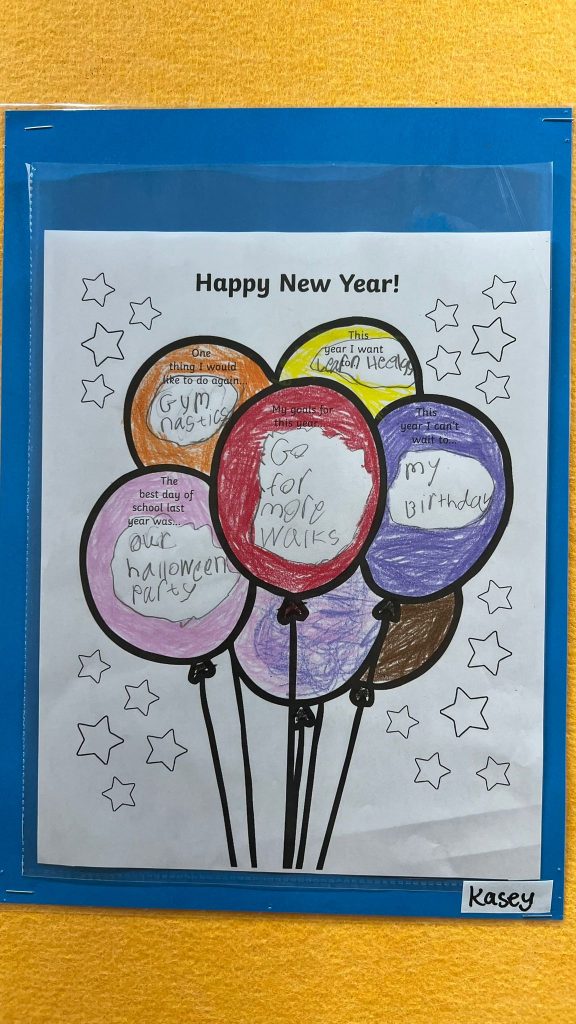 Happy New Year!
One
thing I would
like to do again...
Gym
nastics
This
year I want
My goals for
this year...
Go
for
more
walks
This
year I can't
wait to...
my
Birthday
The
best day of
school last
year was...
our
halloween
party
Kasey